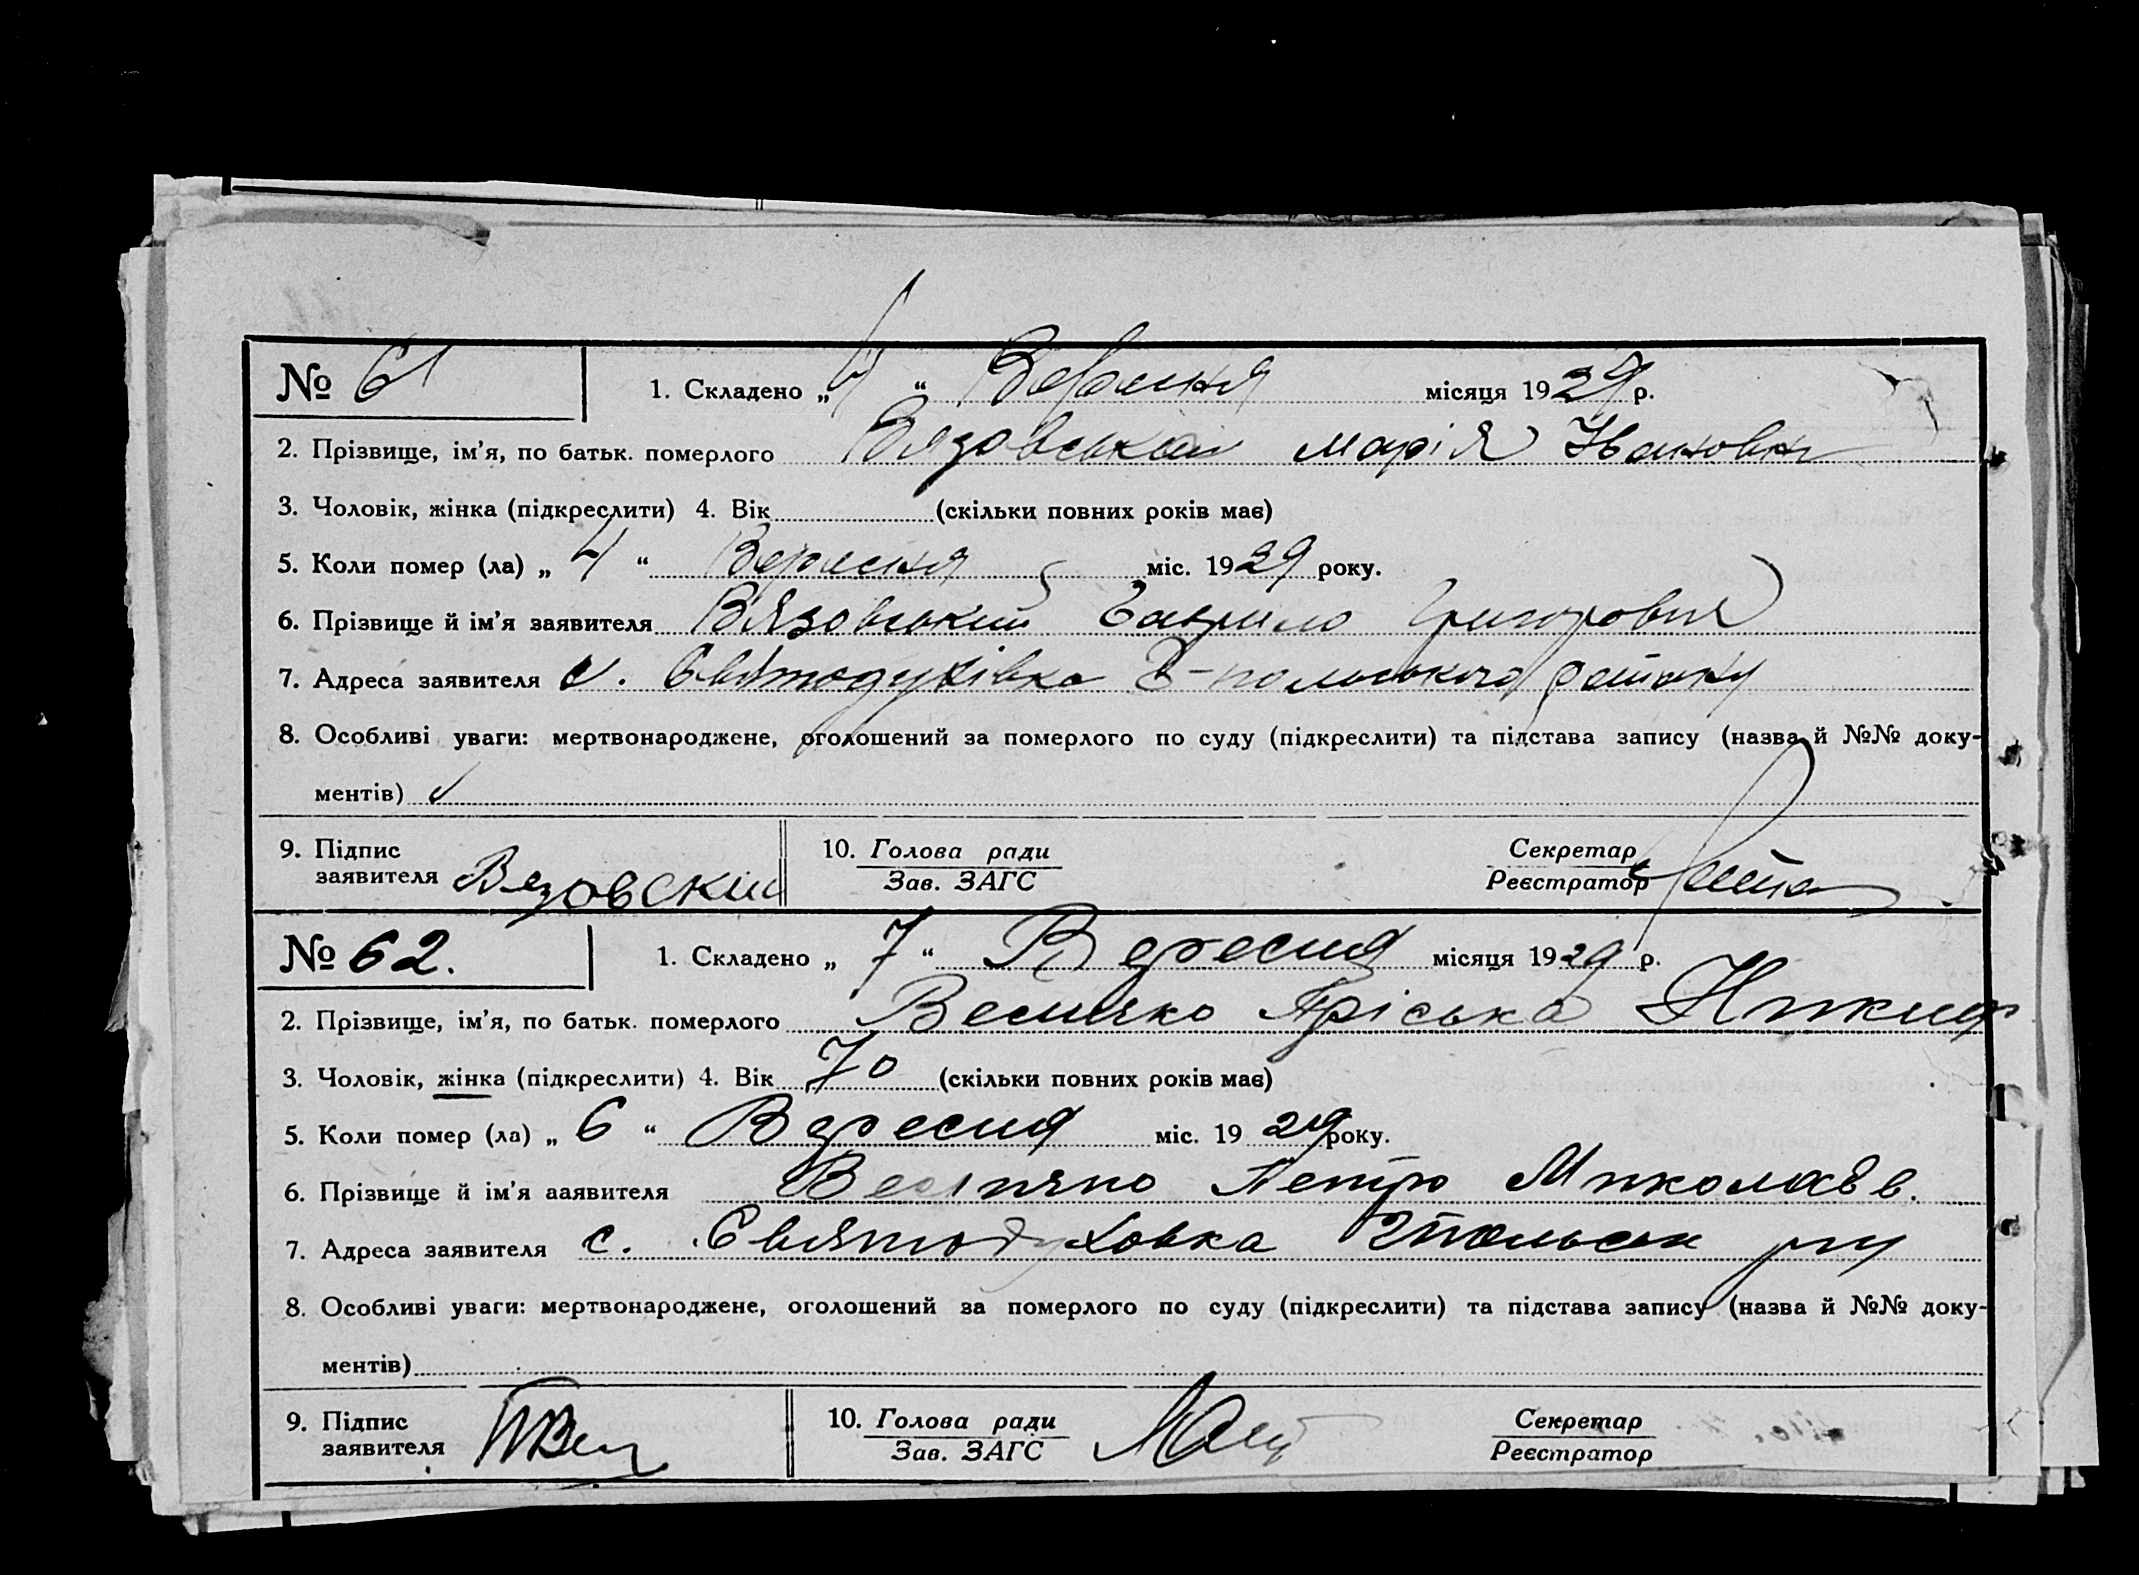 № 61 1. Складено „4“ Вересня місяця 1929 р.
2. Прізвище, ім'я, по батьк. померлого Вязовська марія Івановна
3. Чоловік, жінка (підкреслити) 4. Вік (скільки повних років має)
5. Коли помер (ла) „4“ Вересня міс. 1929 року.
6. Прізвище й ім'я заявителя Вязовський Гаврило Григорович
7. Адреса заявителя с. Святодухівка З-польського району
8. Особливі уваги: мертвонароджене, оголошений за померлого по суду (підкреслити) та підстава запису (назва й №№ доку-
ментів)
9. Підпис 10. Голова ради Секретар
заявителя Вязовский Зав. ЗАГС Реєстратор
№ 62. 1. Складено „7“ Вересня місяця 1929 р.
2. Прізвище, ім'я, по батьк. померлого Величко Пріська Никиф
3. Чоловік, жінка (підкреслити) 4. Вік 70 (скільки повних років має)
5. Коли помер (ла) „6“ Вересня міс. 1929 року.
6. Прізвище й ім'я ааявителя Петро Миколаєв.
7. Адреса заявителя с. Святодуховка Зпольськ р-ну
8. Особливі уваги: мертвонароджене, оголошений за померлого по суду (підкреслити) та підстава запису (назва й №№ доку-
ментів)
9. Підпис 10. Голова ради Секретар
заявителя Зав. ЗАГС Реєстратор